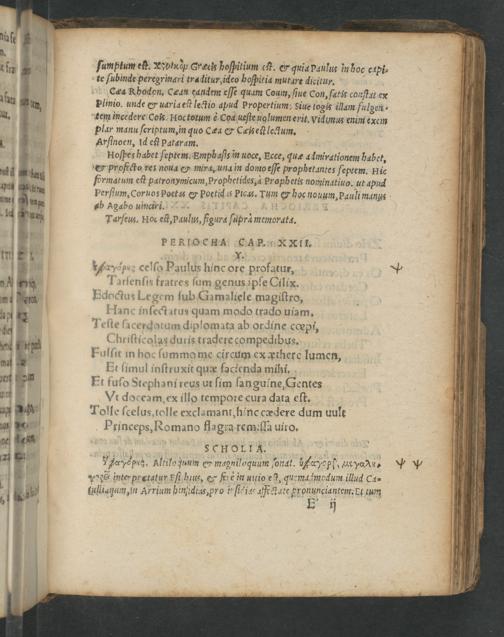 sumptum est. Græcis hospitium est. & quia Paulus in hoc capi-
te subinde peregrinari traditur, ideo hospitia mutare dicitur.
Cæa Rhodon. Cæan eandem esse quam Coum, siue Con, satis constat ex
Plinio. unde & uaria est lectio apud Propertium: Siue togis illam fulgen-
tem incedere Cois. Hoc totum è Coa ueste uolumen erit. Vidimus enim exem
plar manu scriptum, in quo Cæa & Cæis est lectum.
Arsinoen, Id est Pataram.
Hospes habet septem. Emphasis in uoce, Ecce, quæ admirationem habet,
& profecto res noua & mira, una in domo esse prophetantes septem. Hic
formatum est patronymicum, Prophetides, à Prophetis nominatiuo. ut apud
Persium, Coruos Poetas & Poetidas Picas. Tum & hoc nouum, Pauli manus
ab Agabo uinciri.
Tarseus. Hoc est, Paulus, figura suprà memorata.
PERIOCHA CAP. XXII.
Y.
Ὑψαγόρης celso Paulus hinc ore profatur,
Tarsensis fratres sum genus ipse Cilix.
Edoctus Legem sub Gamaliele magistro,
Hanc insectatus quam modo trado uiam.
Teste sacerdotum diplomata ab ordine cœpi,
Christicolas duris tradere compedibus.
Fulsit in hoc summo me circum ex æthere lumen,
Et simul instruxit quæ facienda mihi.
Et fuso Stephani reus ut sim sanguine, Gentes
Vt doceam, ex illo tempore cura data est.
Tolle scelus, tolle exclamant, hinc cædere dum uult
Princeps, Romano flagra remissa uiro.
SCHOLIA.
Ὑψαγόρης. Altiloquum & magniloquum sonat.
interpretatur Esichius, & ferè in uitio est, quemadmodum illud Ca-
tullianum, in Arrium hinsidias, pro insidias affectate pronunciantem. Et tum
E ij